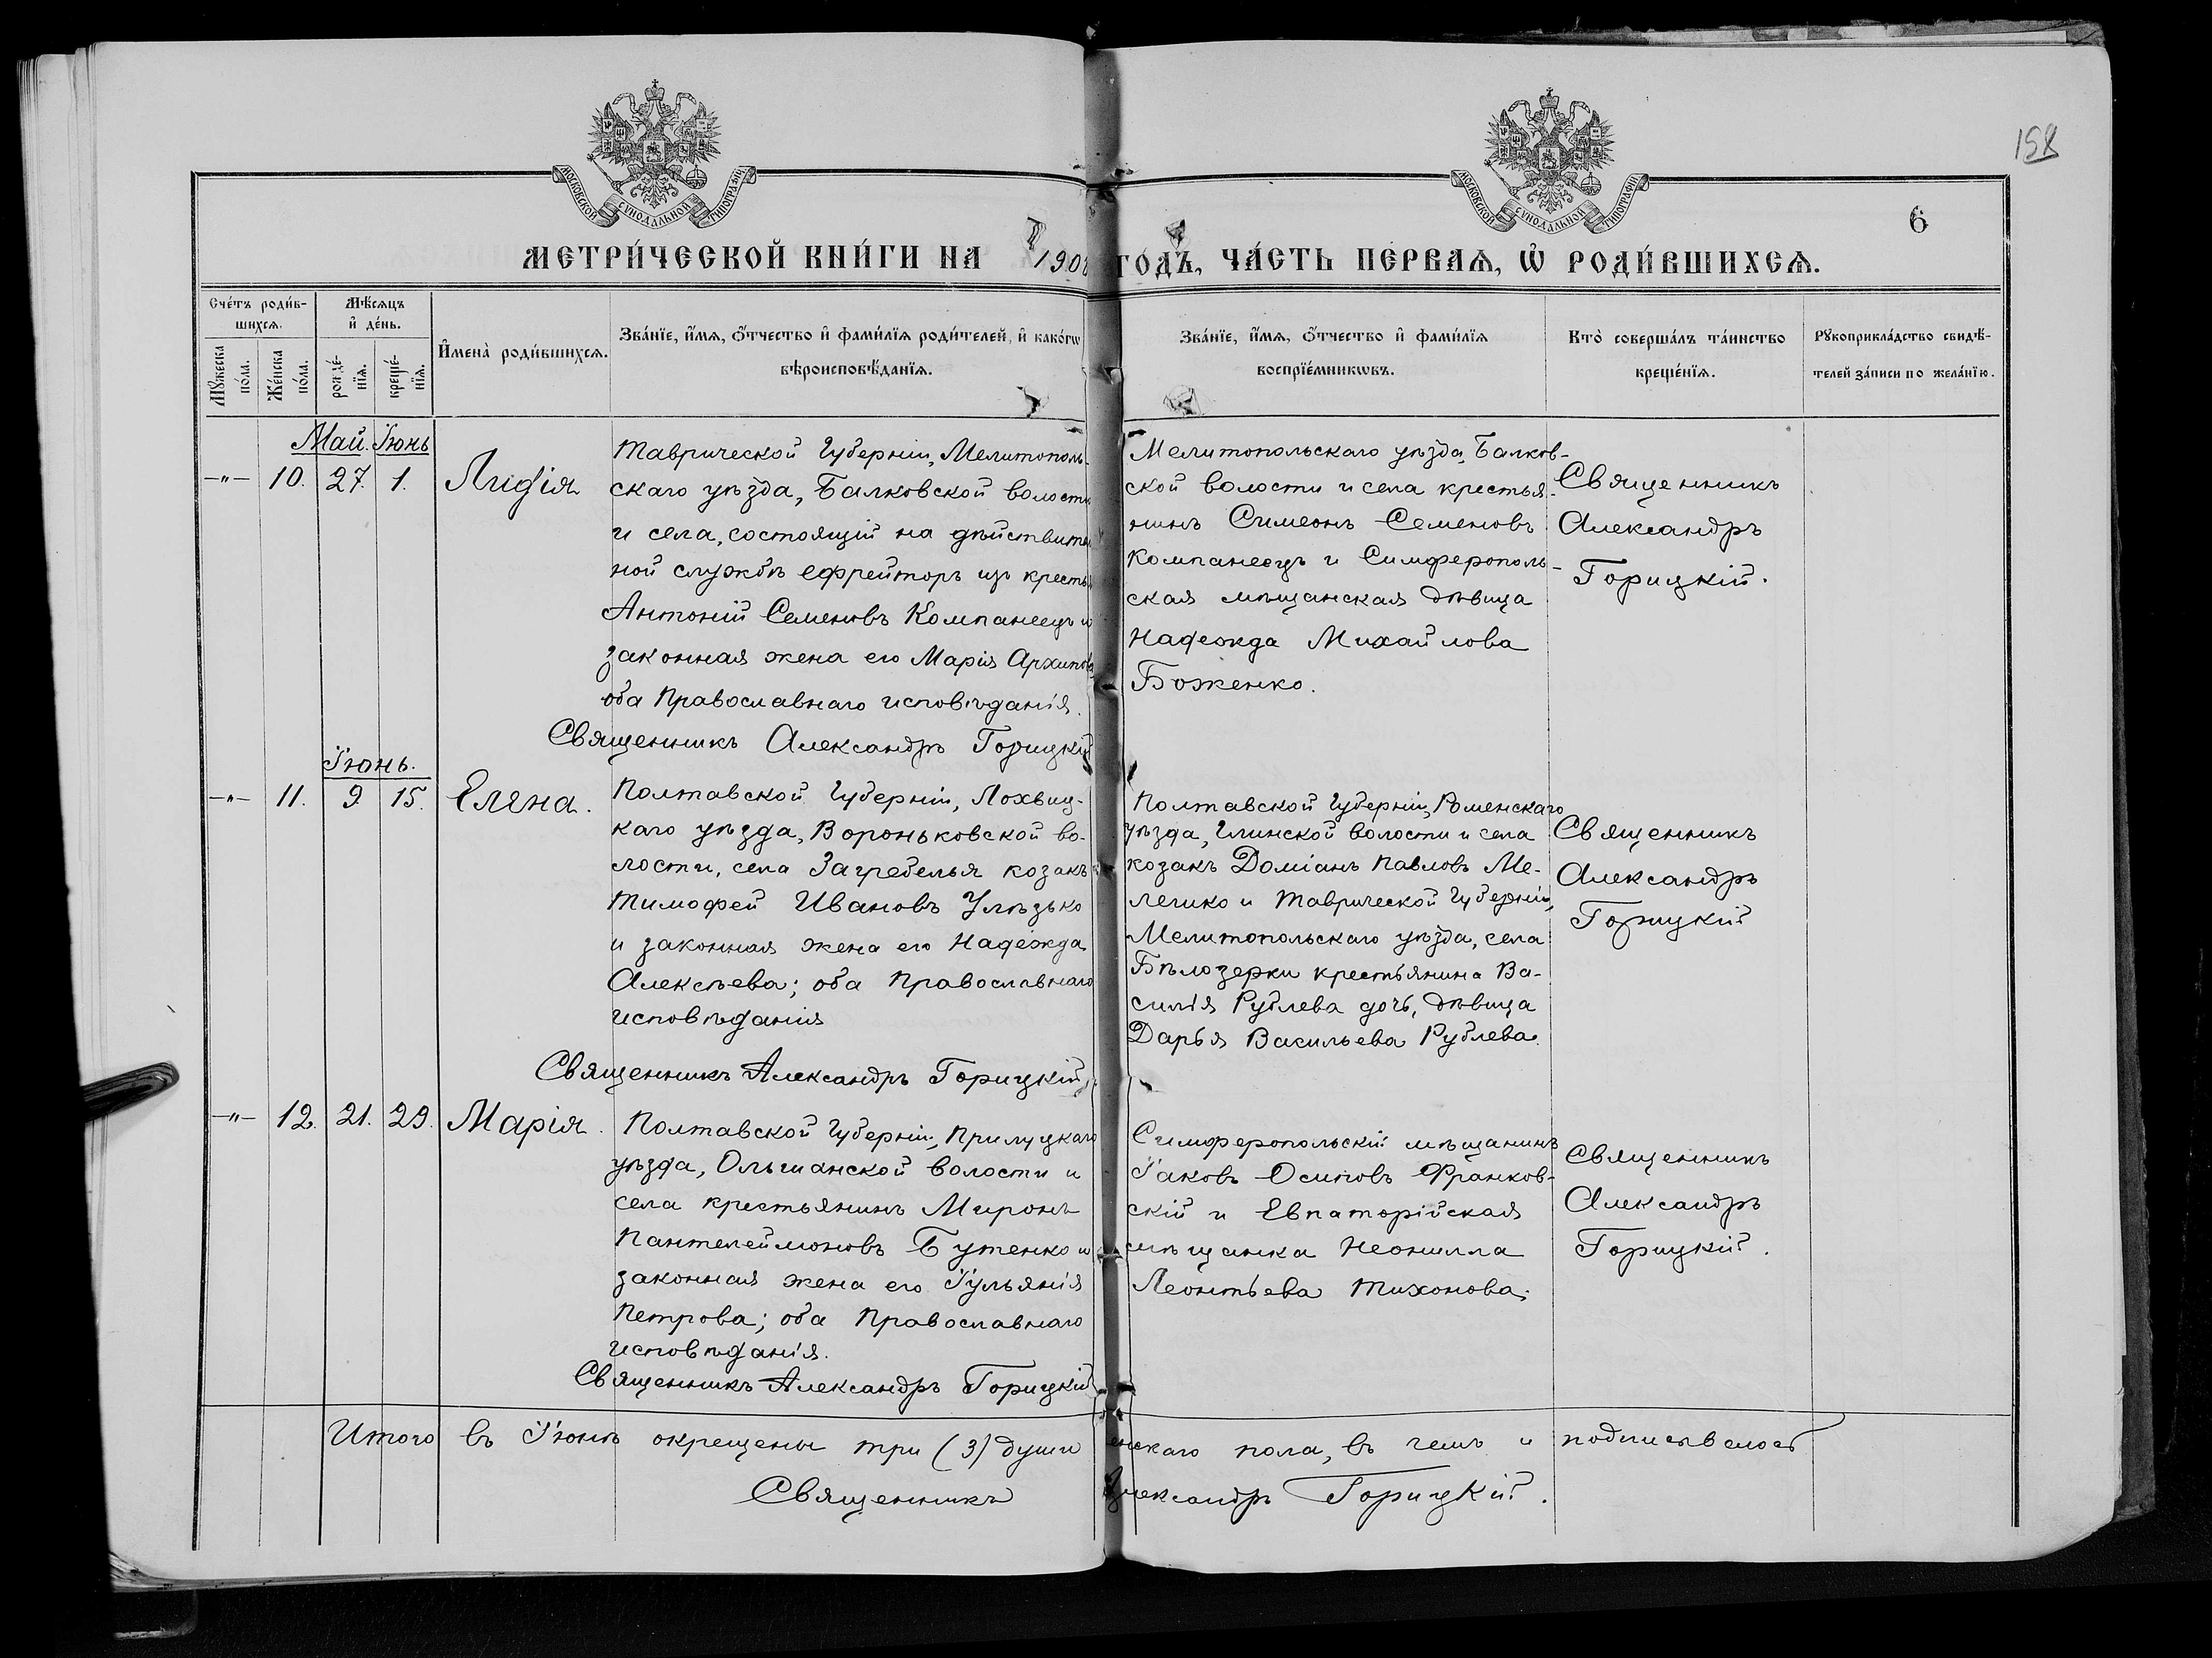 158
МОСКОВСКОЙ СУНОДАЛЬНОЙ ТИПОГРАФІИ
МОСКОВСКОЙ СУНОДАЛЬНОЙ ТИПОГРАФІИ
6
МЕТРИ́ЧЕСКОЙ КНИ́ГИ НА 190 ГО́ДЪ, ЧА́СТЬ ПЕ́РВАѦ, Ѡ РОДИ́ВШИХСѦ.
Сче́тъ роди́в-
шихсѧ.
Мѣ́сѧцъ
и҆ де́нь.
Мꙋ́жеска
по́ла.
Же́нска
по́ла.
рожде́-
нїѧ.
креще́-
нїѧ.
И҆мена̀ роди́вшихсѧ.
Зва́нїе, и҆́мѧ, ѻ҆́тчество и҆ фами́лїѧ роди́телей, и҆ како́гѡ
вѣроисповѣ́данїѧ.
Зва́нїе, и҆́мѧ, ѻ҆́тчество и҆ фами́лїѧ
воспрїе́мникѡвъ.
Кто̀ соверша́лъ та́инство
креще́нїѧ.
Рꙋкоприкла́дство свидѣ́-
телей за́писи по жела́нїю.
Май. Іюнь
-"- 10. 27. 1. Лидія
Таврической Губерніи, Мелитополь-
скаго уѣзда, Балковской волости
и села, состоящій на дѣйствитель
ной службѣ ефрейторъ изъ кресть
Антоній Семеновъ Компанеецъ и
законная жена его Марія Архипова
оба Православнаго исповѣданія.
Священникъ Александръ Горицкій
Мелитопольскаго уѣзда, Балков-
ской волости и села крестья-
нинъ Симеонъ Семеновъ
Компанеецъ и Симферополь-
ская мѣщанская дѣвица
Надежда Михайлова
Боженко.
Священникъ
Александръ
Горицкій.
Іюнь.
-"- 11. 9. 15. Елена.
Полтавской Губерніи, Лохвиц-
каго уѣзда, Вороньковской во-
лости, села Загребелья козакъ
Тимофей Ивановъ Улѣзько
и законная жена его Надежда
Алексѣева; оба Православнаго
исповѣданія
Священникъ Александръ Горицкій
Полтавской Губерніи, Роменскаго
уѣзда, Глинской волости и села
козакъ Доміанъ Павловъ Ме-
лешко и Таврической Губерніи,
Мелитопольскаго уѣзда, села
Бѣлозерки крестьянина Ва-
силія Рублева дочь, дѣвица
Дарья Васильева Рублева.
Священникъ
Александръ
Горицкій
-"- 12. 21. 29. Марія.
Полтавской Губерніи, Прилуцкаго
уѣзда, Ольшанской волости и
села крестьянинъ Миронъ
Пантелеймоновъ Бутенко и
законная жена его Іульянія
Петрова; оба Православнаго
исповѣданія.
Священникъ Александръ Горицкій
Симферопольскій мѣщанинъ
Іаковъ Осиповъ Франков-
скій и Евпаторійская
мѣщанка Неонилла
Леонтьева Тихонова.
Священникъ
Александръ
Горицкій.
Итого въ Іюнѣ окрещены три (3) души енскаго пола, въ чемъ и подписываюсь
Священникъ Александръ Горицкій.